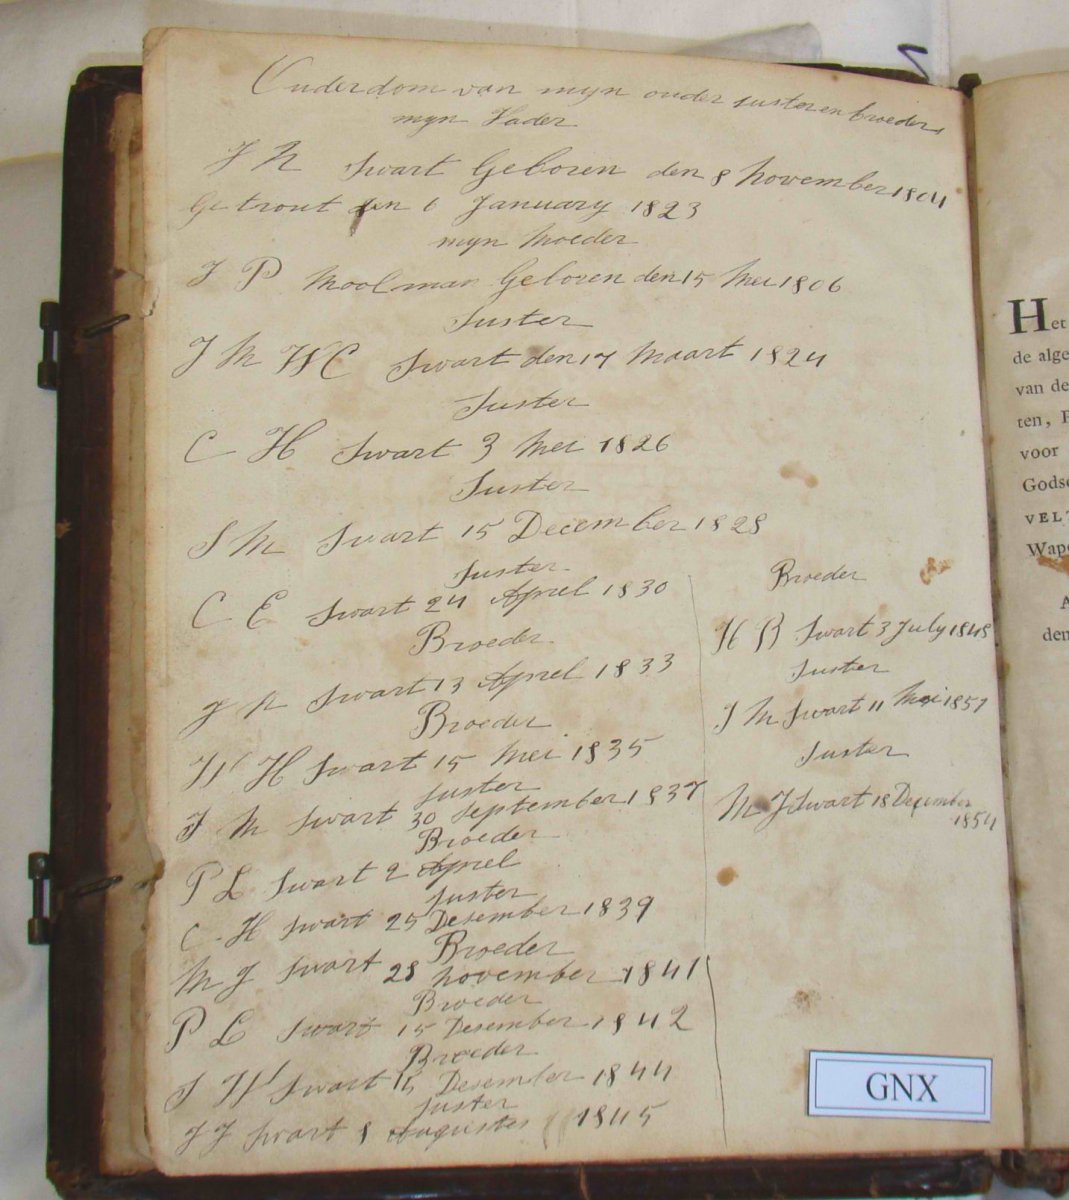 Ouderdom van myn ouder suster en broeders
myn Vader
J N Swart Geboren den 8 November 1804
Getrout den 6 January 1823
myn Moeder
J P Moolman Geboren den 15 Mei 1806
Suster
J M W C Swart den 17 Maart 1824
Suster
C H Swart 3 Mei 1826
Suster
S M Swart 15 December 1828
Suster
C E Swart 24 April 1830
Broeder
J N Swart 13 April 1833
Broeder
W H Swart 15 Mei 1835
Suster
J M Swart 30 September 1837
Broeder
P L Swart 2 April
Suster
C H Swart 25 Desember 1839
Broeder
M J Swart 28 November 1841
Broeder
P L Swart 15 Desember 1842
Broeder
S W Swart 15 Desember 1844
Suster
J J Swart 8 Augustes 1845
Broeder
H B Swart 3 July 1848
Suster
J M Swart 11 Mei 1851
Suster
M J Swart 18 December
1854
GNX
Het
de alge
van de
ten,
voor
Gods
VELT
Wape
A
den